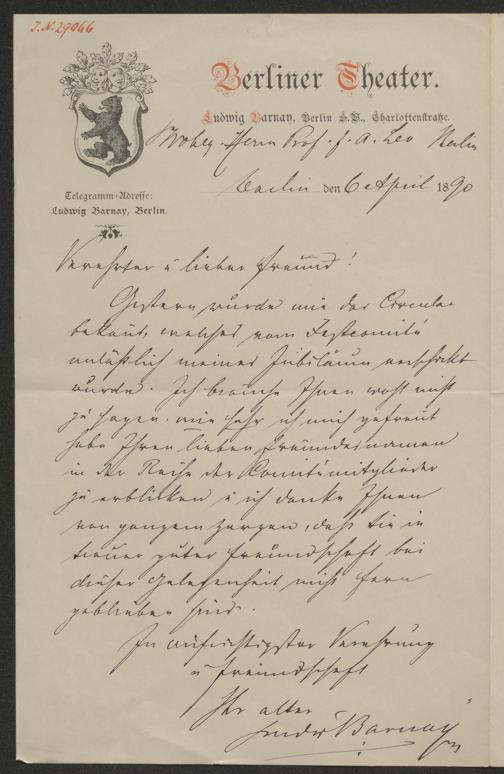 J.N. 29066
Berliner Theater.
Ludwig Barnay, Berlin S.W., Charlottenstraße.
Herrn Prof. F. A. Leo Berlin
Telegramm-Adresse:
Ludwig Barnay, Berlin.
Berlin den 6 April 1890
Verehrter u lieber Freund!
Gestern wurde mir das Circular
bekannt, welches vom Festcomité
anläßlich meines Jubiläums verschickt
wurde. Ich brauche Ihnen wohl nicht
zu sagen wie sehr ich mich gefreut
habe Ihren lieben Freundesnamen
in der Reihe der Comitémitglieder
zu erblicken u ich danke Ihnen
von ganzem Herzen, daß Sie in
treuer guter Freundschaft bei
dieser Gelegenheit nicht fern
geblieben sind.
In aufrichtigster Verehrung
u Freundschaft
Ihr alter
Ludwig Barnay